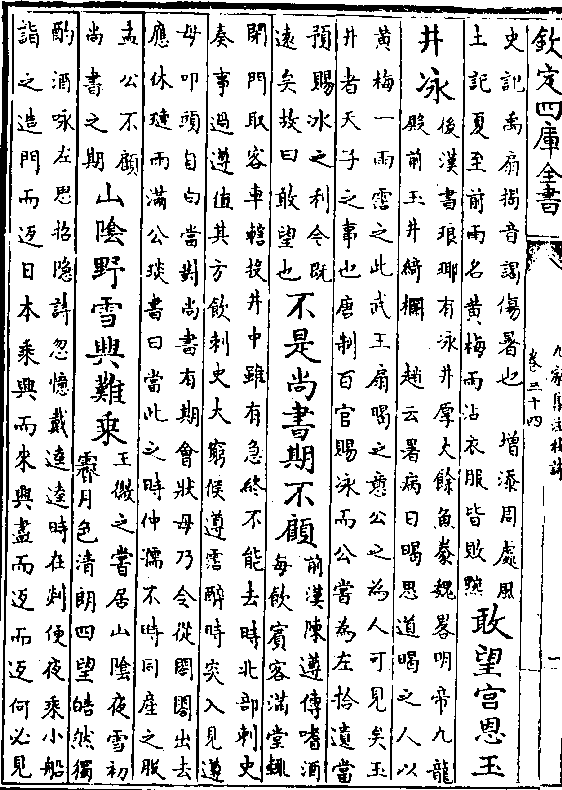 欽定四庫全書
九家集注杜詩
卷三十四
史記禹扇暍音謁傷暑也 增添周處風
土記夏至前雨名黄梅雨沾衣服皆敗黦
敢望宫恩玉
井冰
後漢書琅琊有冰井厚大餘魚豢魏畧明帝九龍
殿前玉井綺欄 趙云暑病曰暍思道暍之人以
黄梅一雨霑之此武王扇暍之意公之為人可見矣玉
井者天子之事也唐制百官賜冰而公嘗為左拾遺當
預賜冰之利今既
遠矣故曰敢望也
不是尚書期不顧
前漢陳遵傳嗜酒
每飲賓客滿堂輒
閉門取客車轄投井中雖有急終不能去時北部刺史
奏事過遵值其方飲刺史大窮候遵霑醉時突入見遵
母叩頭自白當對尚書有期會狀母乃令從閤閣出去
應休璉雨滿公琰書曰當此之時仲孺不時同產之服
孟公不顧
尚書之期
山陰野雪興難乘
王徽之嘗居山陰夜雪初
霽月色清朗四望皓然獨
酌酒咏左思招隱詩忽憶戴逵逵時在剡便夜乘小船
詣之造門而返曰本乘興而來興盡而返而返何必見